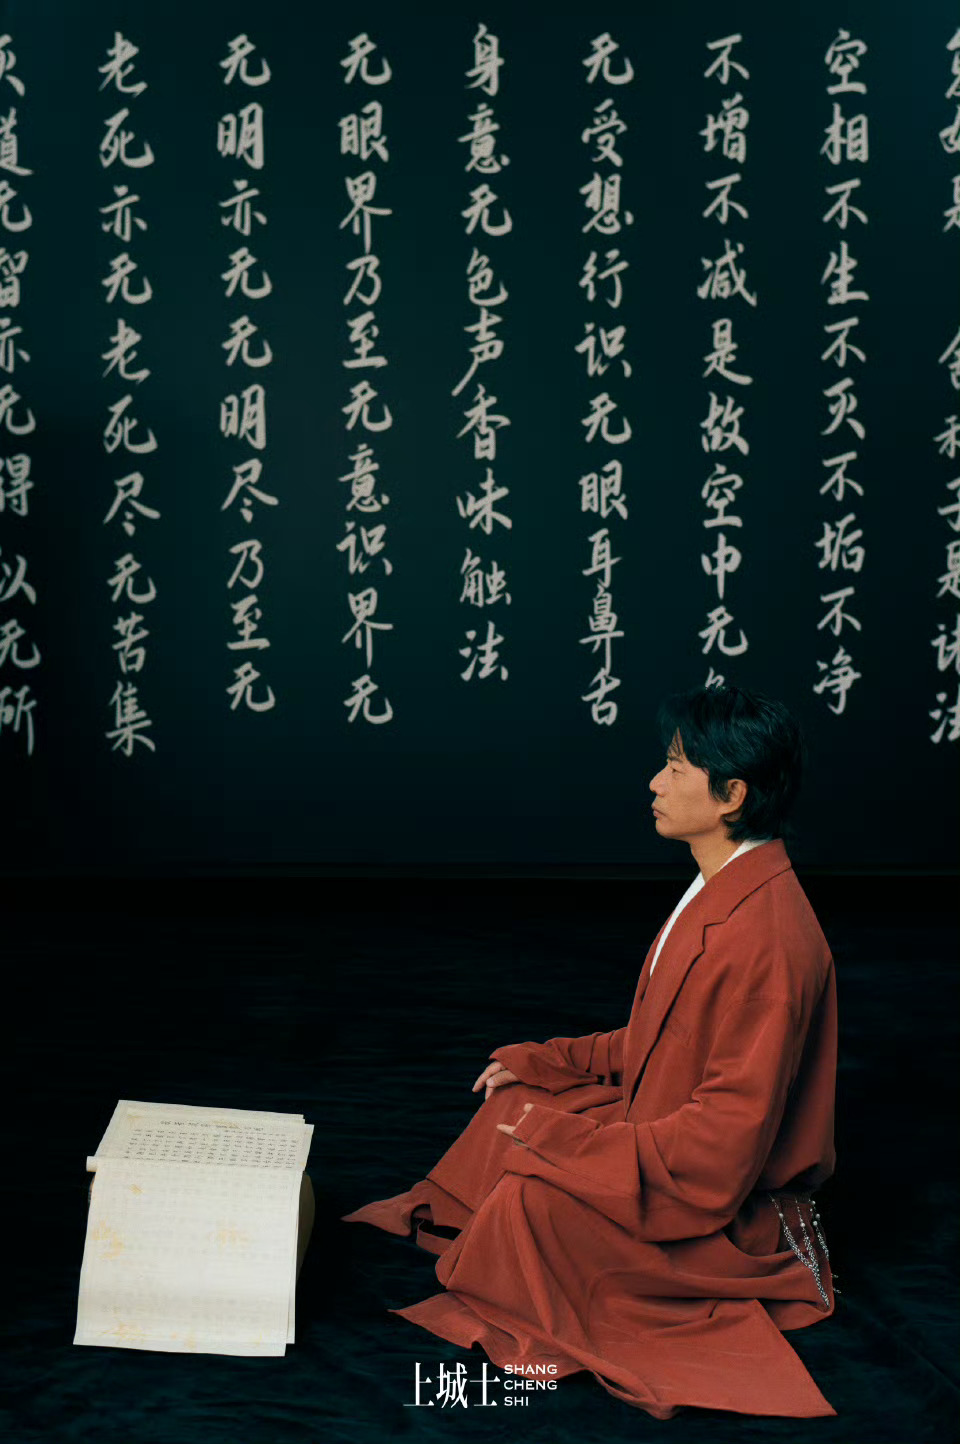 复如是 舍利子是诸法
空相不生不灭不垢不净
不增不减是故空中无
无受想行识无眼耳鼻舌
身意无色声香味触法
无眼界乃至无意识界无
无明亦无无明尽乃至无
老死亦无老死尽无苦集
灭道无智亦无得 以无所
上城士
SHANG
CHENG
SHI